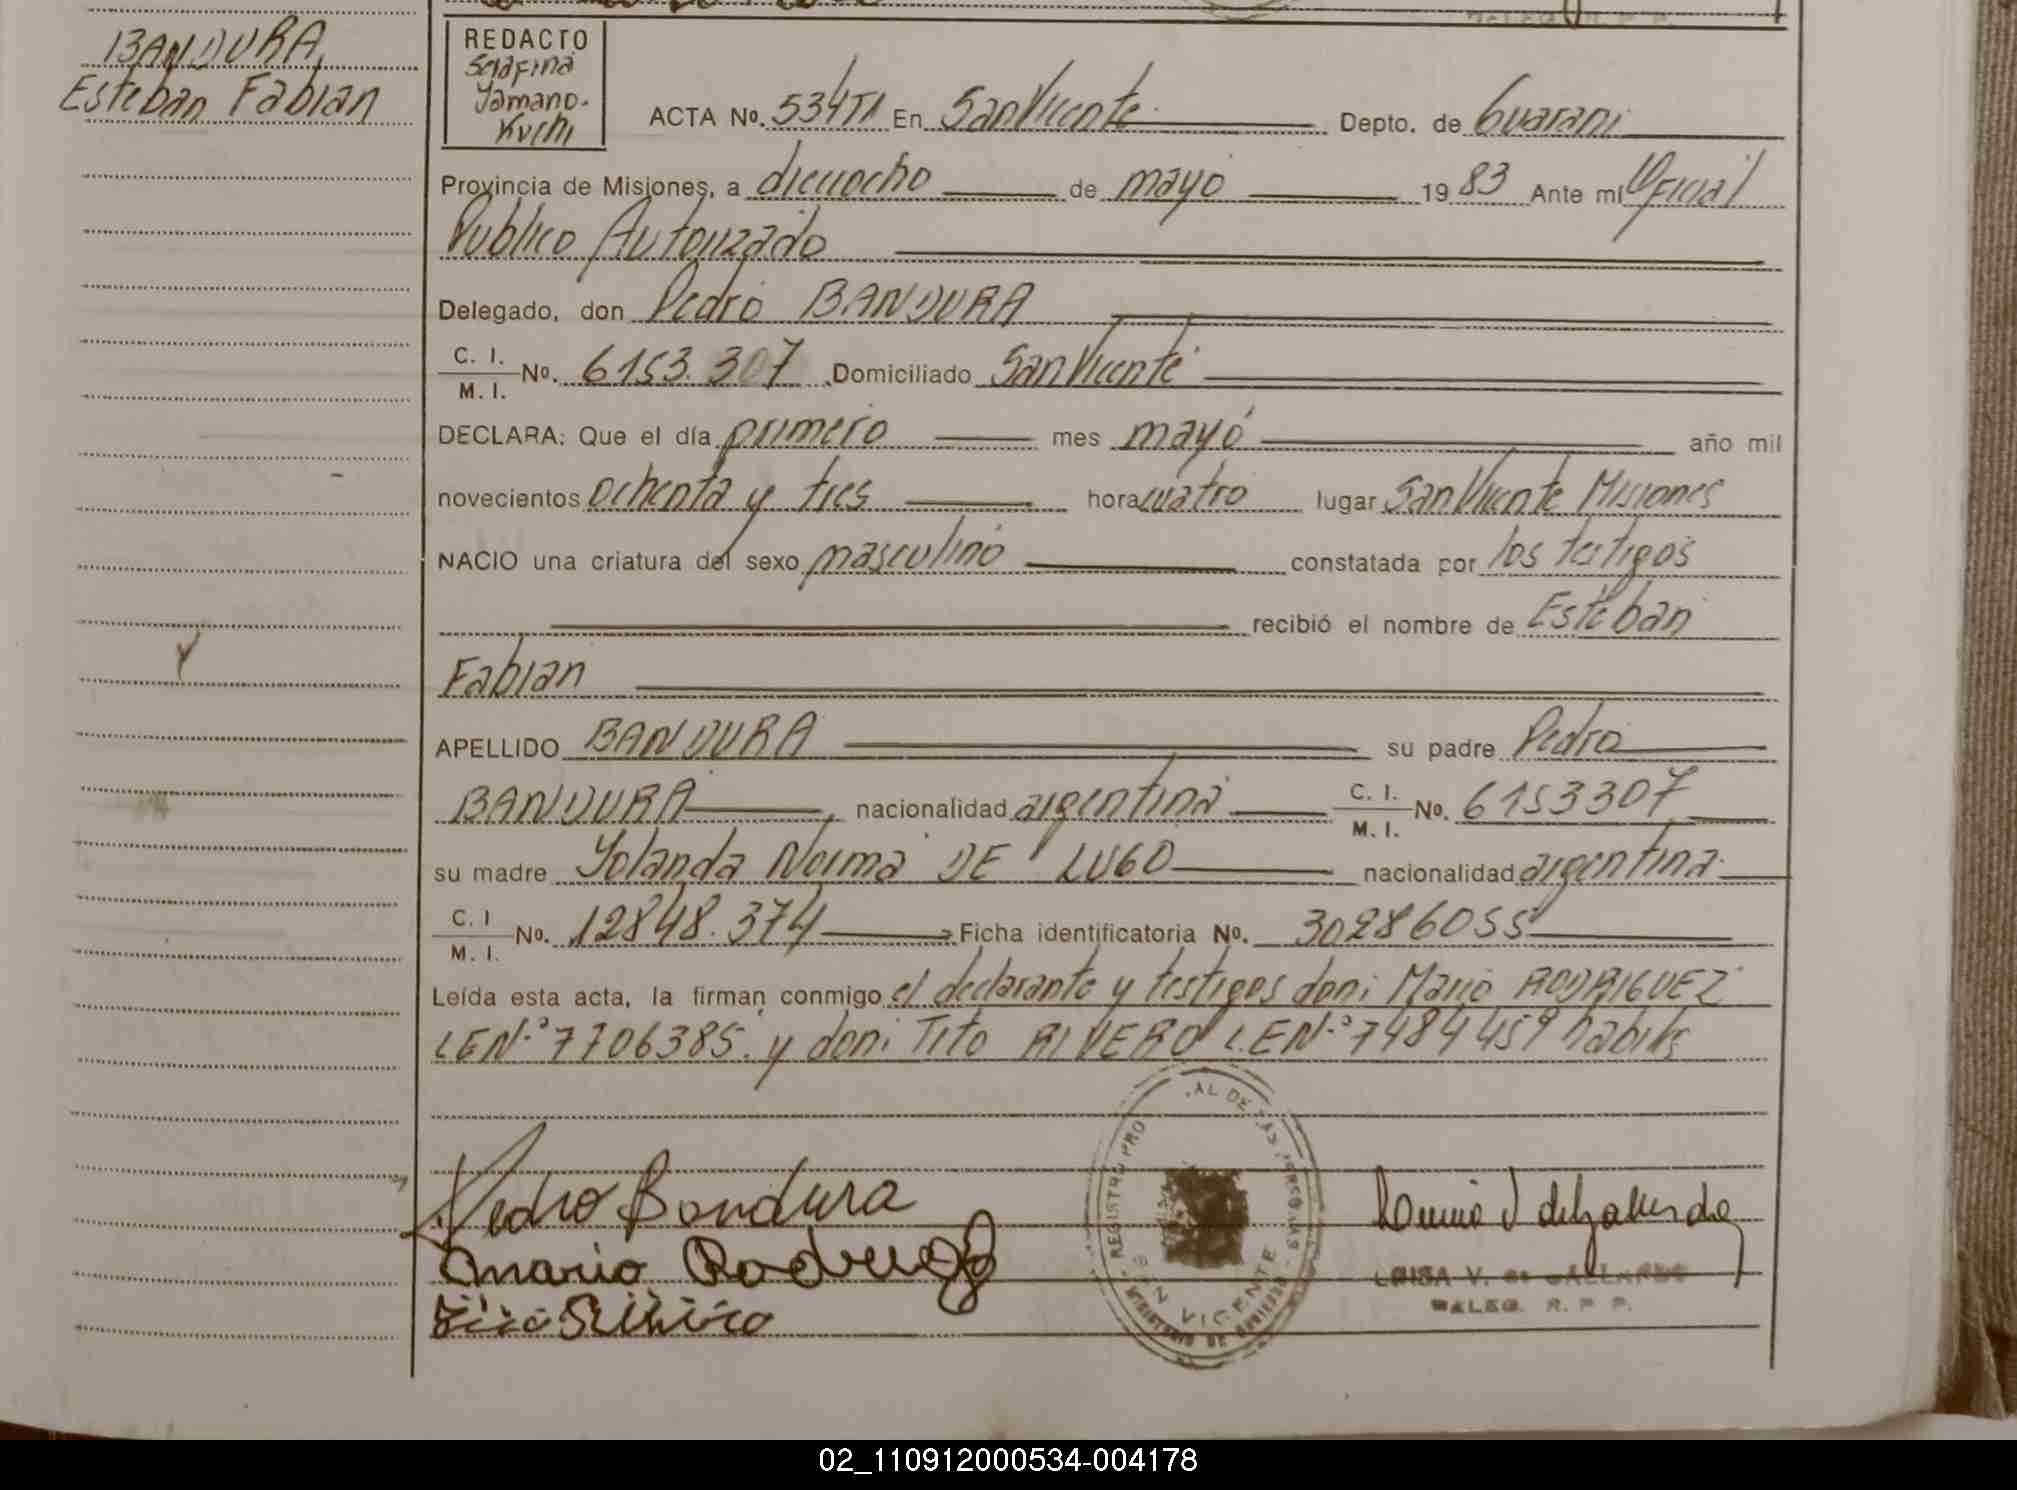 BANDURA,
Esteban Fabian
REDACTO
Serafina
Yamano-
Kuchi
ACTA No. 534TI En San Vicente Depto. de Guarani
Provincia de Misiones, a dieciocho de mayo 1983 Ante mi Oficial
Publico Autorizado
Delegado, don Pedro BANDURA
C. I.
M. I. No. 6153.307 Domiciliado San Vicente
DECLARA: Que el día primero mes mayo año mil
novecientos ochenta y tres hora cuatro lugar San Vicente Misiones
NACIO una criatura del sexo masculino constatada por los testigos
recibió el nombre de Esteban
Fabian
APELLIDO BANDURA su padre Pedro
BANDURA, nacionalidad argentina C. I. M. I. No. 6153307
su madre Yolanda Norma DE LUGO nacionalidad argentina
C. I M. I. No. 12848.374 Ficha identificatoria No. 30286055
Leída esta acta, la firman conmigo el declarante y testigos don: Mario RODRIGUEZ
LEN.º 7706385. y don: Tito RIVERO L.EN.º 7484459 habiles
Pedro Bandura
Mario Rodriguez
REGISTRO PRO AL DE LAS PERSONAS
SAN VICENTE
MINISTERIO DE GOBIERNO
LUISA V. de GALLARDO
DELEG. R. P. P.
02_110912000534-004178